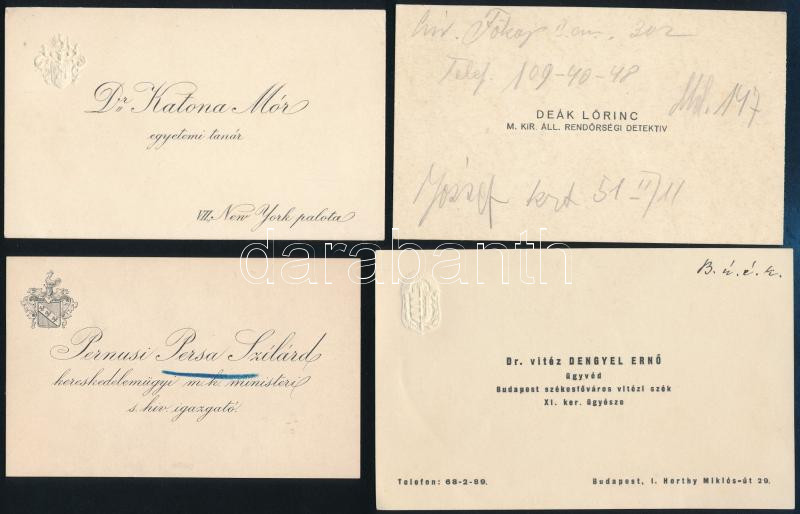 Dr Katona Mór
egyetemi tanár
VII. New York palota
hiv. Főkap 302
Telef. 109-40-48
Mel. 147
DEÁK LŐRINC
M. KIR. ÁLL. RENDŐRSÉGI DETEKTIV
József krt 51 II/11
Pernusi Persa Szilárd
kereskedelemügyi m. k. ministeri
s. hiv. igazgató.
B. ú. é. k.
Dr. vitéz DENGYEL ERNŐ
ügyvéd
Budapest székesfőváros vitézi szék
XI. ker. ügyésze
Telefon: 68-2-89.
Budapest, I. Horthy Miklós-út 29.
darabanth